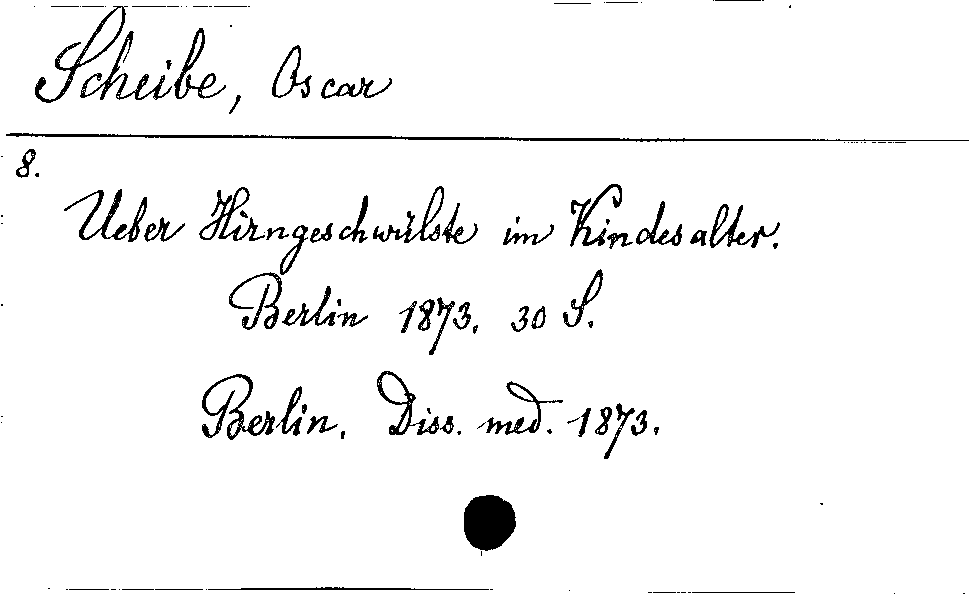 Scheibe, Oscar
8.
Ueber Hirngeschwülste im Kindesalter.
Berlin 1873. 30 S.
Berlin. Diss. med. 1873.